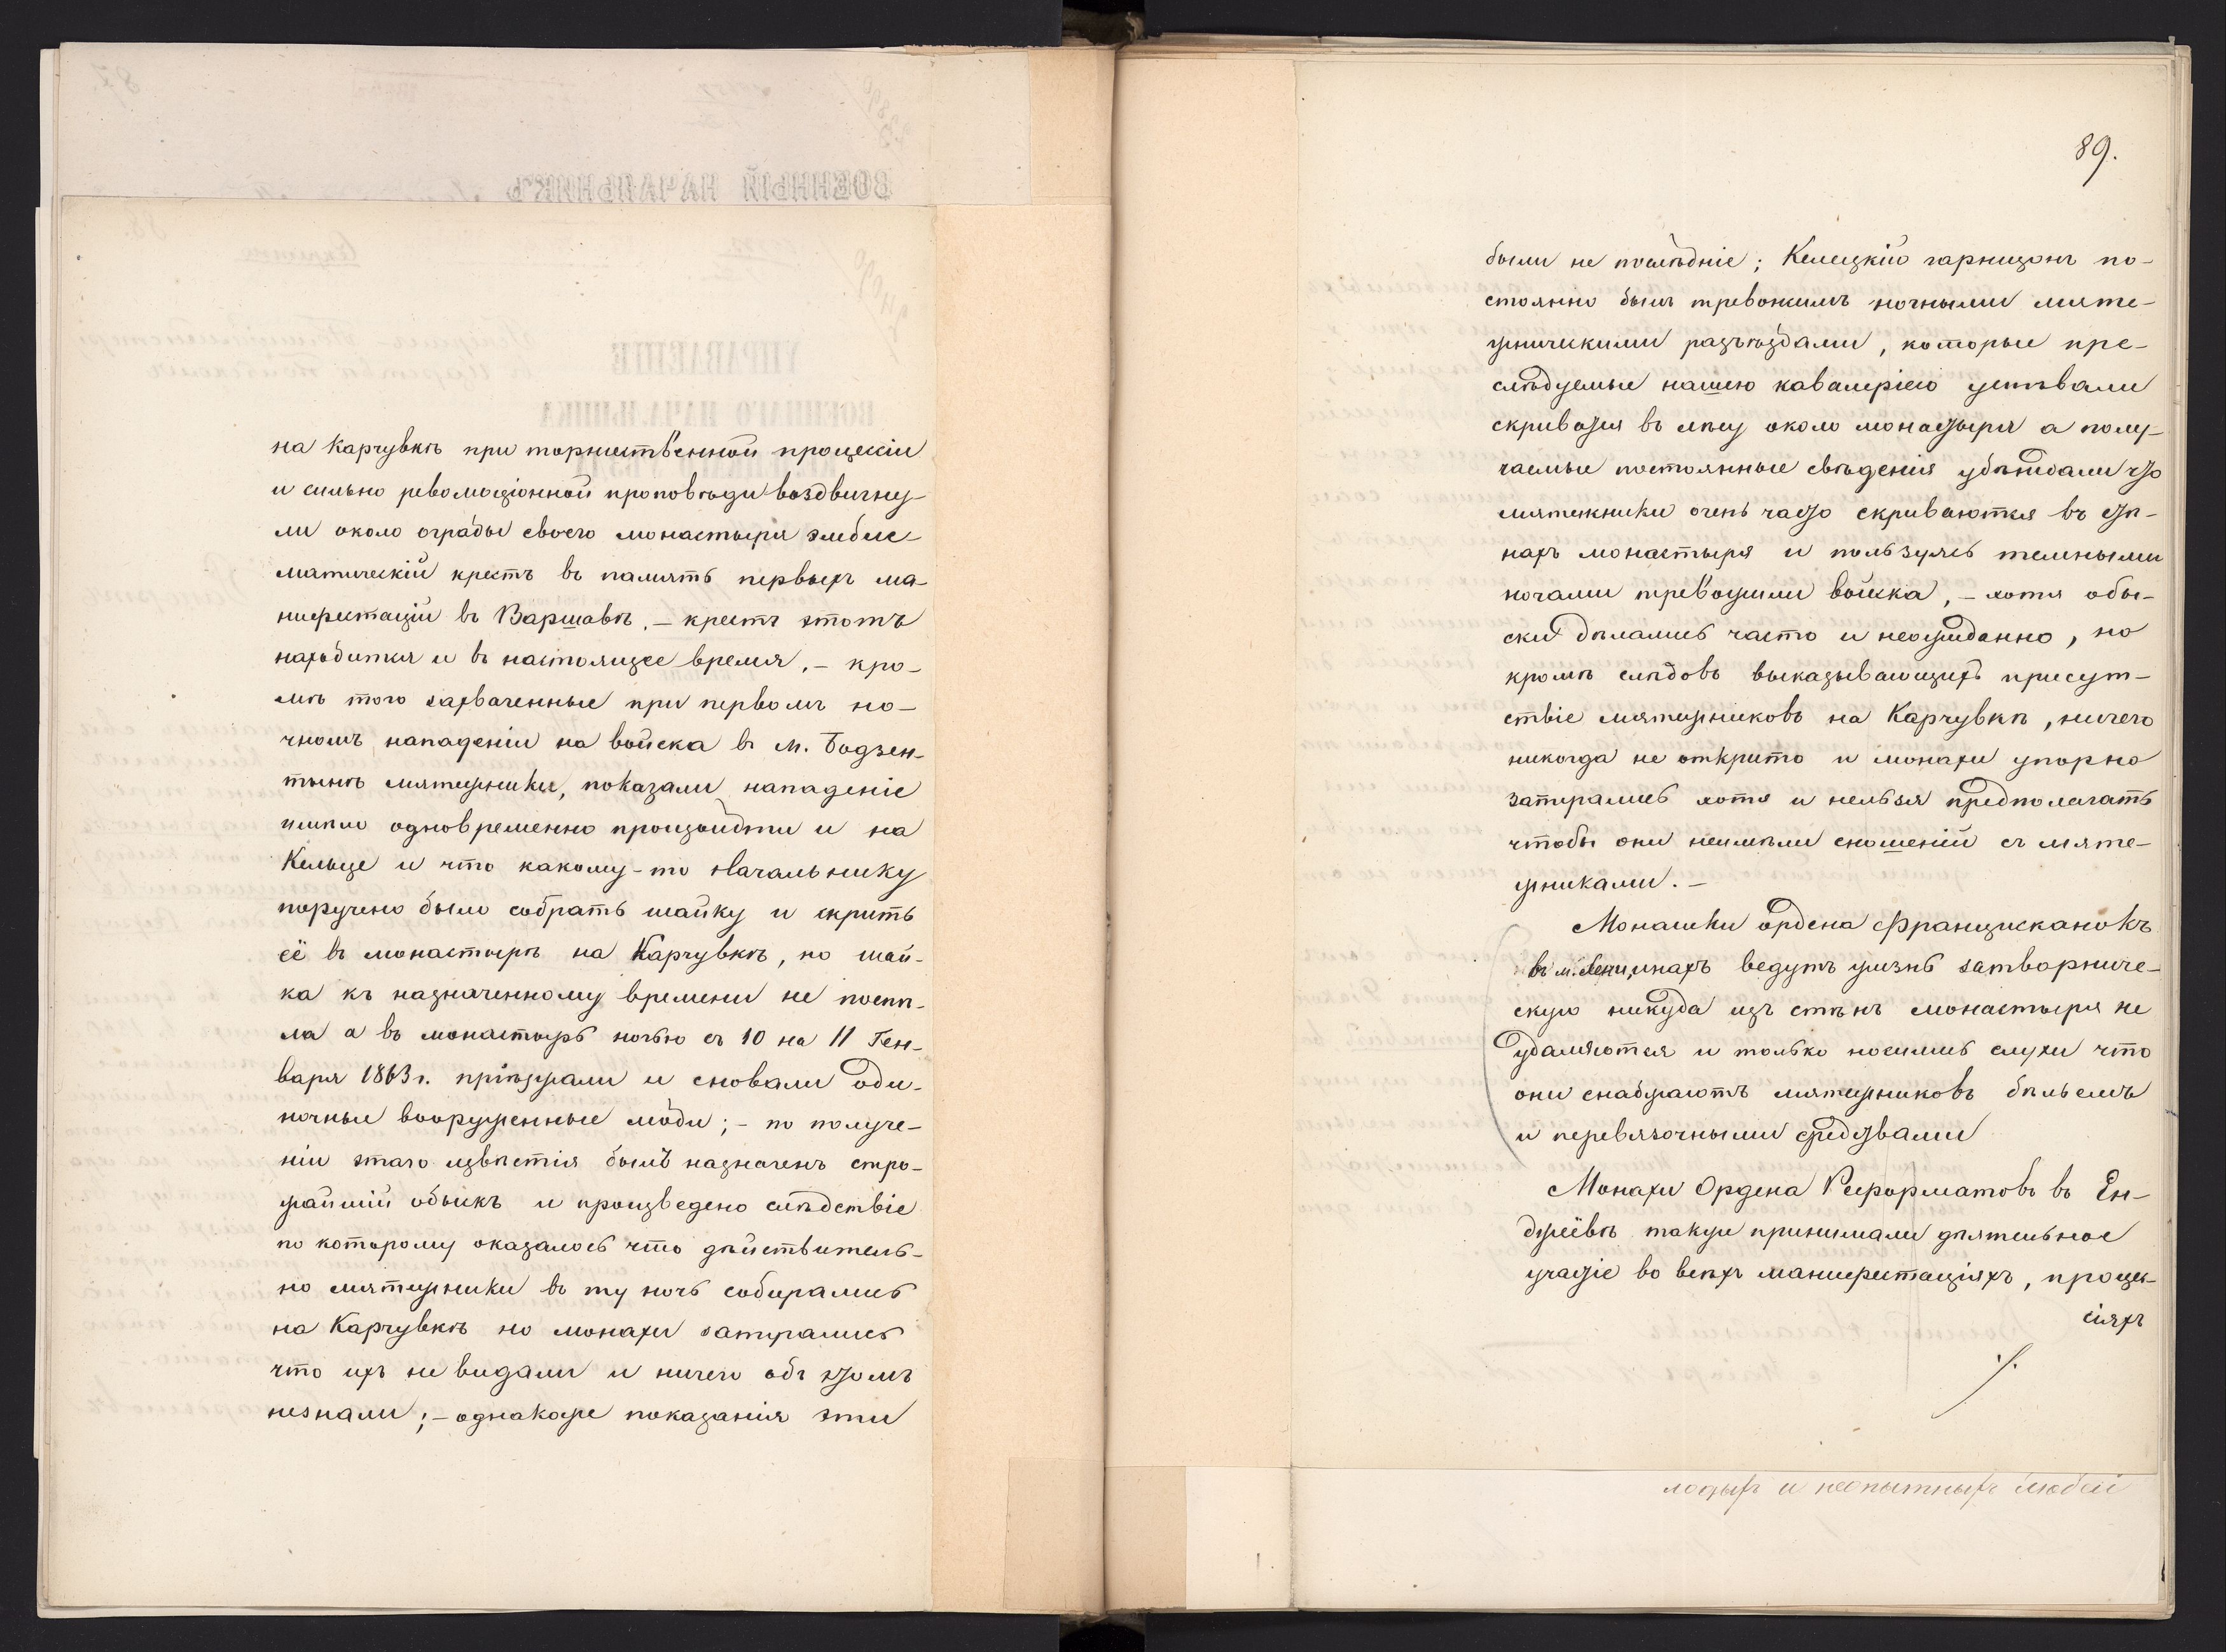 на Карчувкѣ при торжественной процессіи
и сильно революціонной проповѣди воздвигну-
ли около ограды своего монастыря эмбле-
матическій крестъ въ память первыхъ ма-
нифестацій въ Варшавѣ, – крестъ этотъ
находится и въ настоящее время, – кро-
мѣ того захваченные при первомъ но-
чномъ нападеніи на войска въ м. Бодзен-
тынѣ мятежники, показали нападеніе
имѣло одновременно произойдти и на
Кельце и что какому-то начальнику
поручено было собрать шайку и скрыть
её въ монастырѣ на Карчувкѣ, но шай-
ка къ назначенному времени не поспѣ-
ла а въ монастырь ночью съ 10 на 11 Ген-
варя 1863 г. пріѣзжали и сновали оди-
ночные вооруженные люди; – по получе-
ніи этаго извѣстія былъ назначенъ стро-
жайшій обыскъ и произведено слѣдствіе
по которому оказалось что дѣйствитель-
но мятежники въ ту ночь собирались
на Карчувкѣ но монахи запирались
что ихъ не видали и ничего объ этомъ
незнали; – однакоже показанія эти
89.
были не послѣдніе; Келецкій гарнизонъ по-
стоянно былъ тревожимъ ночными мяте-
жническими разъѣздами, которые пре-
слѣдуемые нашею кавалеріею успѣвали
скриваться въ лѣсу около монастыря а полу-
чаемые постоянные свѣденія убѣждали что
мятежники очень часто скриваются въ стѣ-
нахъ монастыря и пользуясь темными
ночами тревожили войска, – хотя обы-
ски дѣлались часто и неожиданно, но
кромѣ слѣдовъ выказывающихъ присут-
ствіе мятежниковъ на Карчувкѣ, ничего
никогда не открыто и монахи упорно
запирались хотя и нельзя предполагать
чтобы они неимѣли сношеній съ мяте-
жниками. –
Монашки ордена Францисканокъ
въ м. ведутъ жизнь затворниче-
скую никуда изъ стѣнъ монастыря не
удаляются и только носились слухи что
они снабжаютъ мятежниковъ бѣльемъ
и перевязочными средствами
Монахи Ордена Реформатовъ въ Ен-
држеёвѣ также принимали дѣятельное
участіе во всѣхъ манифестаціяхъ, процес-
сіяхъ
./.
лодыхъ и неопытныхъ людей
ВОЕННЫЙ НАЧАЛЬНИКЪ
УПРАВЛЕНІЕ
ВОЕННАГО НАЧАЛЬНИКА